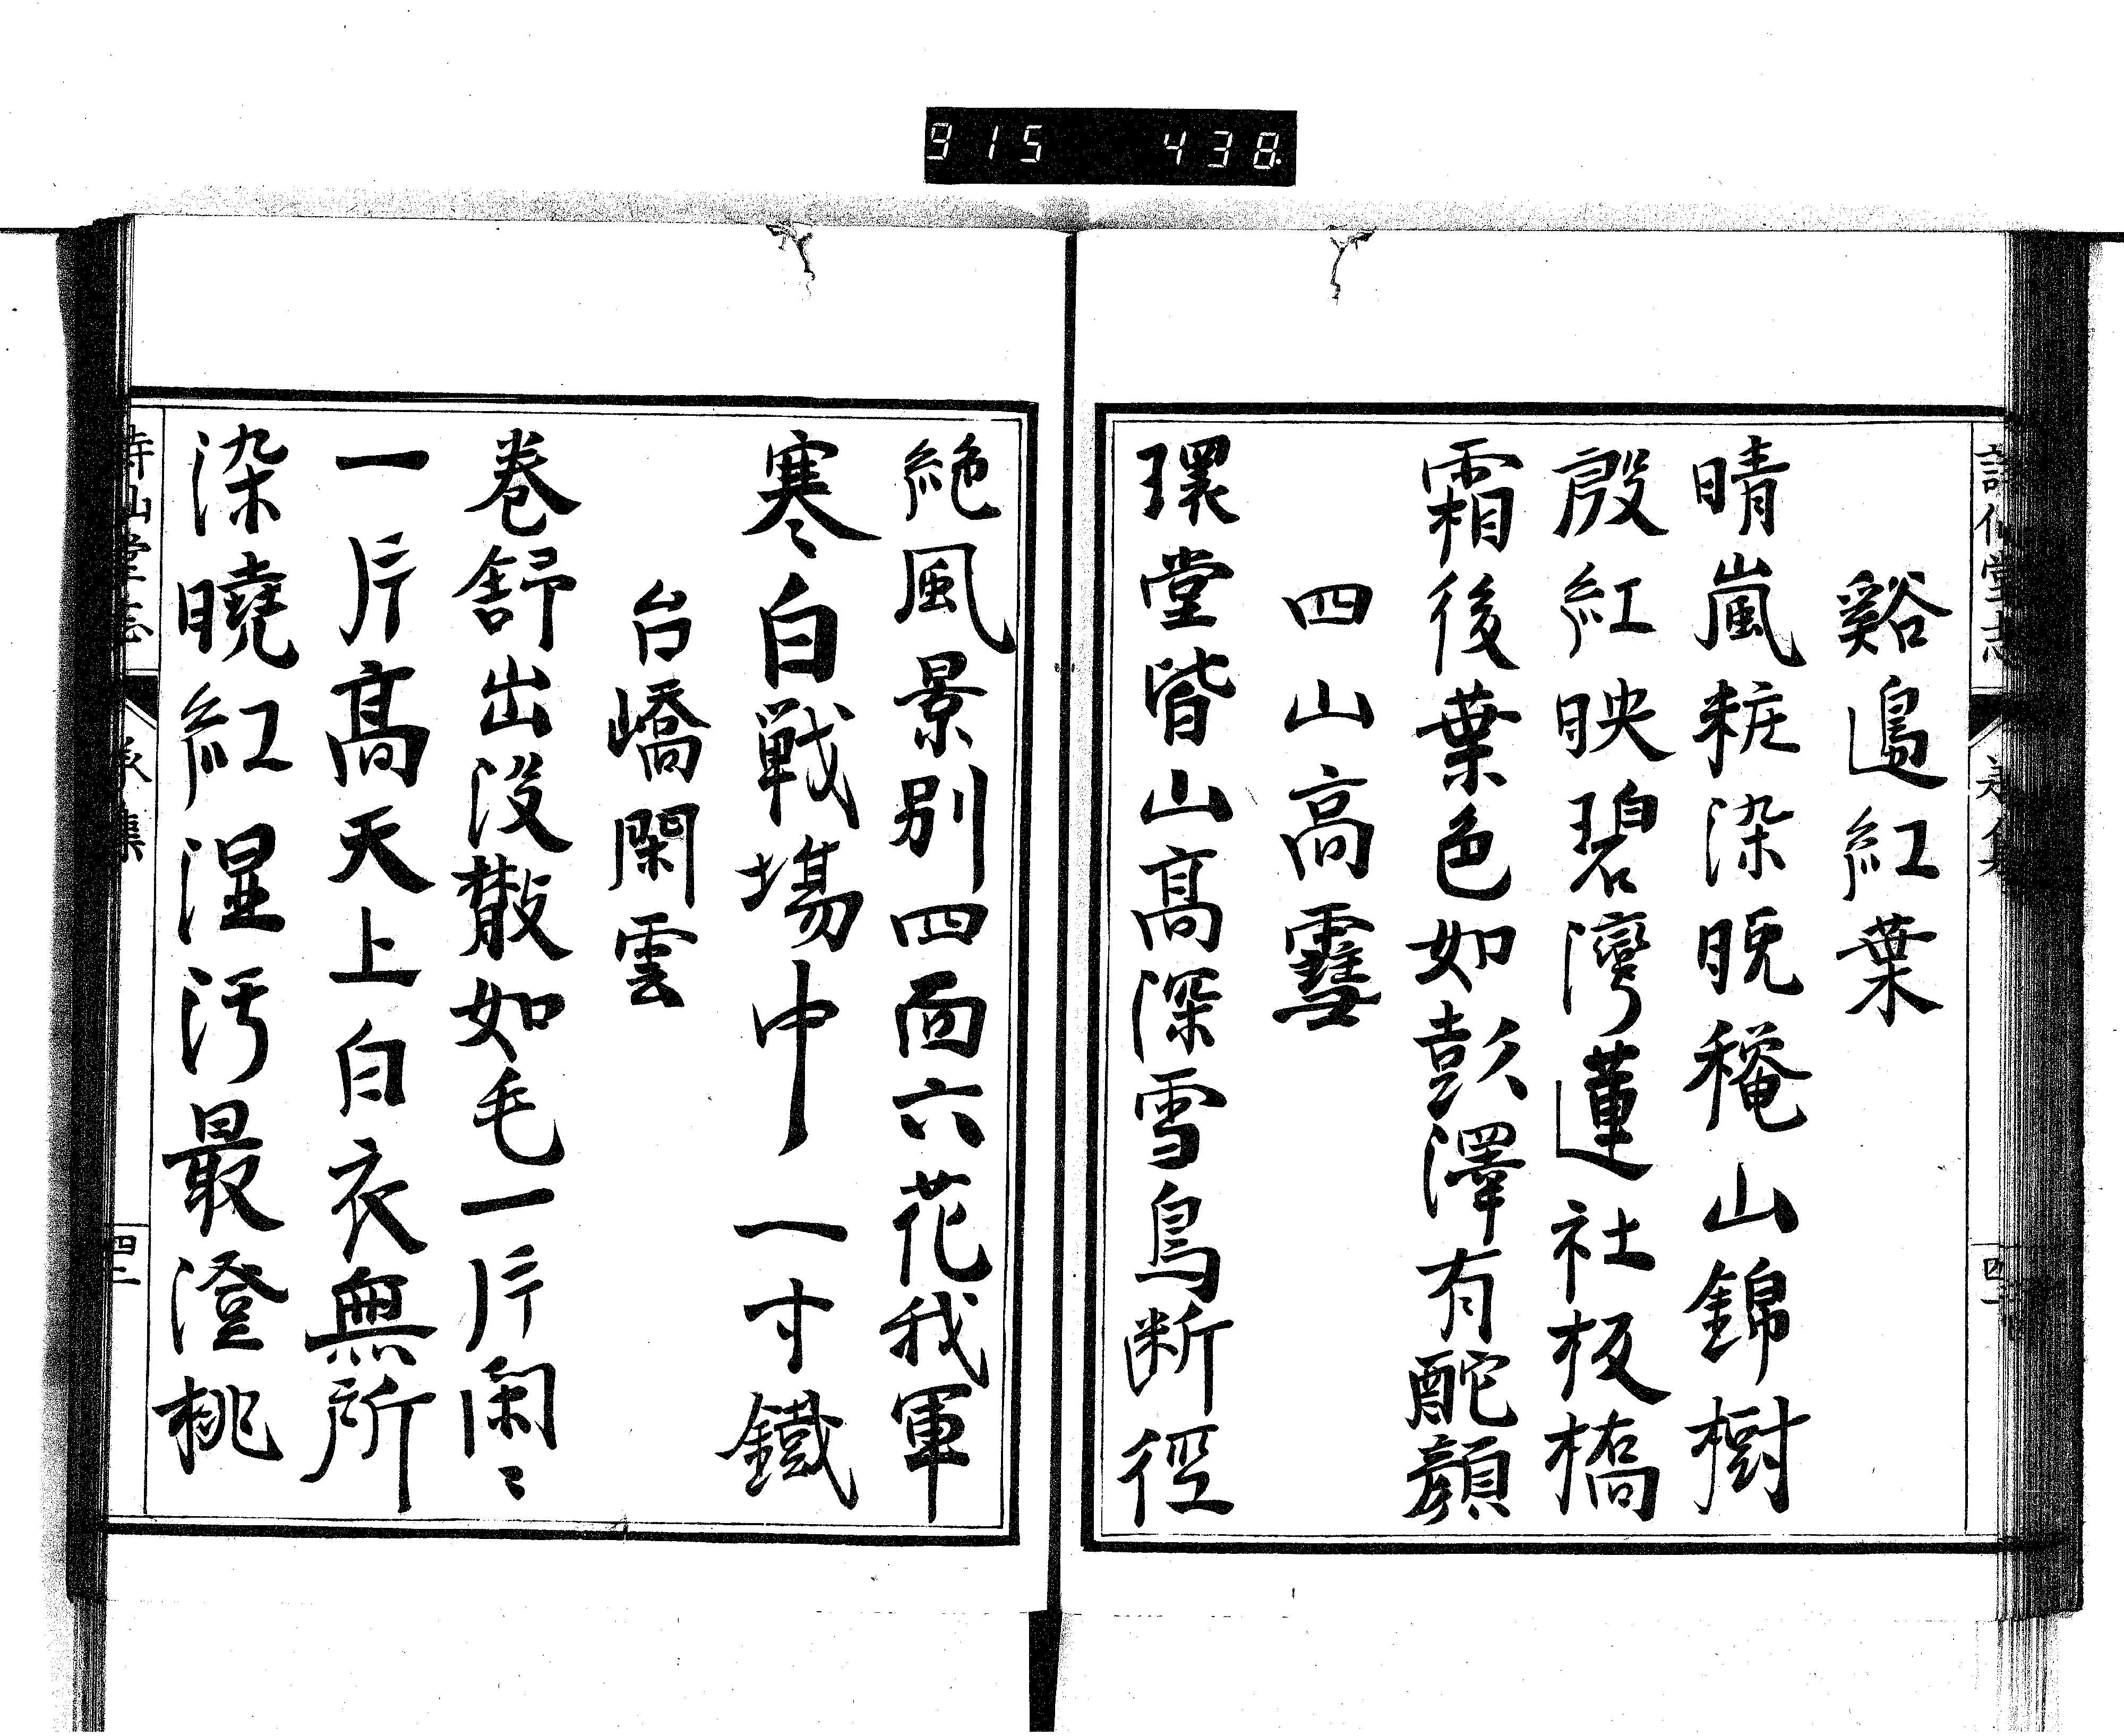 915 438
谿邉紅葉
晴嵐粧染晩穐山錦樹
殷紅映碧灣蓮社板橋
霜後葉色如彭澤有酡顏
四山高雪
環堂皆山髙深雪鳥断徑
絶風景別四面六花我軍
寒白戦場中一寸鐵
台嶠閑雲
巻舒出没散如毛一片閑〻
一片髙天上白衣無所
染曉紅湿污最澄桃
四二